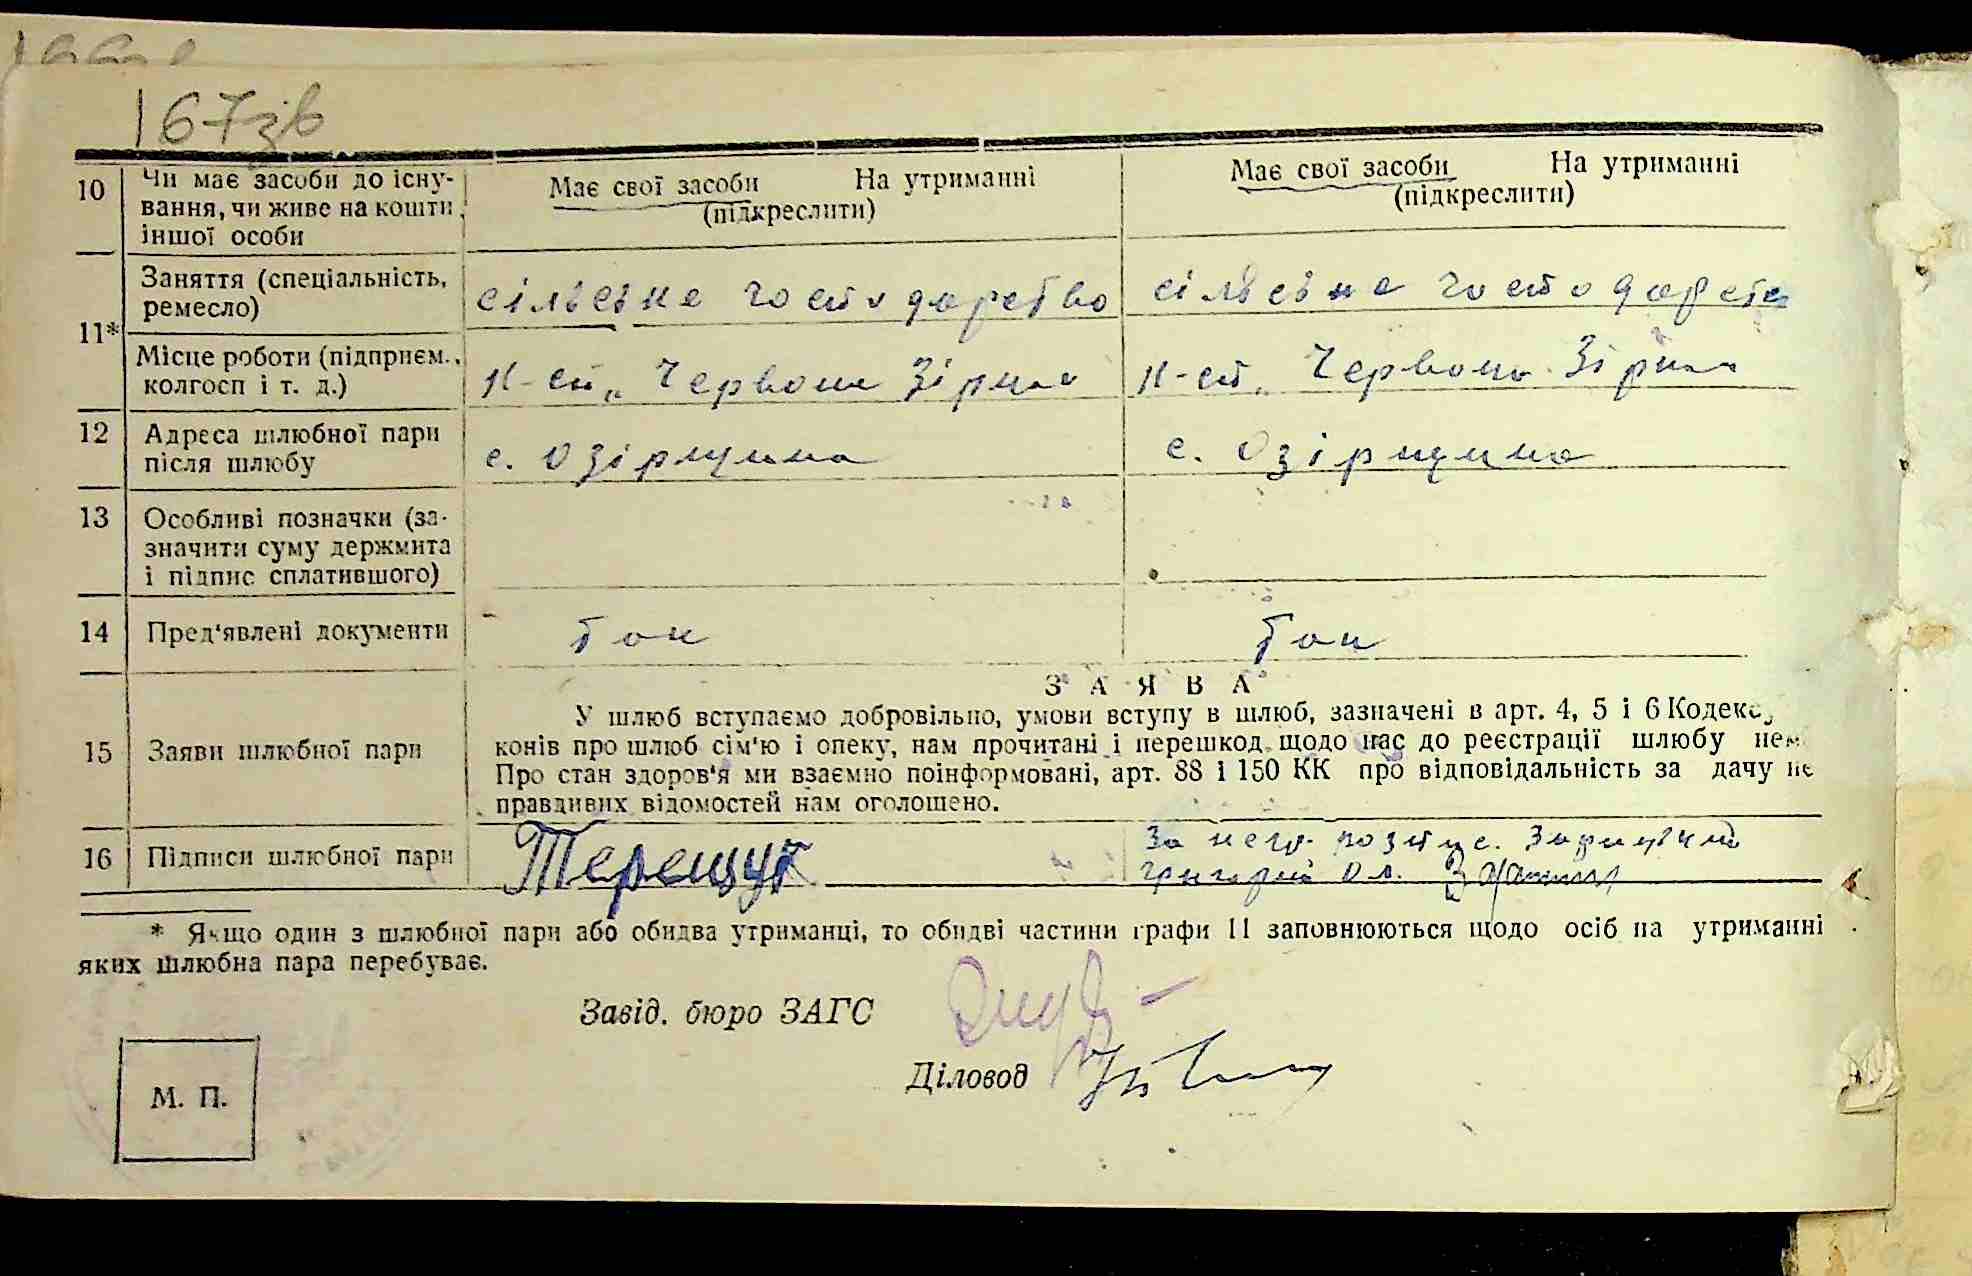 167зв
10 Чи має засоби до існу-
вання, чи живе на кошти
іншої особи
Має свої засоби На утриманні
(підкреслити)
Має свої засоби На утриманні
(підкреслити)
11*
Заняття (спеціальність,
ремесло)
сільське господарство
сільське господарство
Місце роботи (підприєм.,
колгосп і т. д.)
к-сп „Червона Зірка
к-сп „Червона Зірка
12 Адреса шлюбної пари
після шлюбу
с. Озірщина
с. Озірщина
13 Особливі позначки (за-
значити суму держмита
і підпис сплатившого)
14 Пред'явлені документи
15 Заяви шлюбної пари
ЗАЯВА
У шлюб вступаємо добровільно, умови вступу в шлюб, зазначені в арт. 4, 5 і 6 Кодексу
конів про шлюб сім'ю і опеку, нам прочитані і перешкод щодо нас до реєстрації шлюбу нема
Про стан здоров'я ми взаємно поінформовані, арт. 88 і 150 КК про відповідальність за дачу не
правдивих відомостей нам оголошено.
16 Підписи шлюбної пари
Терещук
За негр. розпис.
Григорій
* Якщо один з шлюбної пари або обидва утриманці, то обидві частини графи 11 заповнюються щодо осіб на утриманні
яких шлюбна пара перебуває.
Завід. бюро ЗАГС
Діловод
М. П.